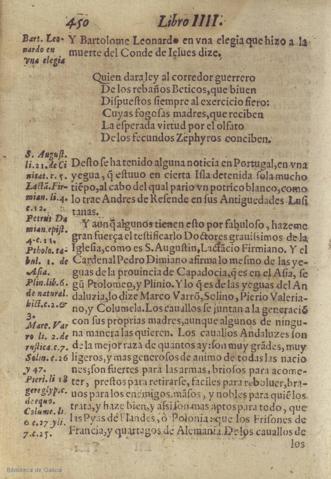 450 Libro IIII.
Bart. Leo-
nardo en
vna elegia
Y Bartolome Leonardo en vna elegia que hizo a la
muerte del Conde de Ielues dize.
Quien dara ley al corredor guerrero
De los rebaños Beticos, que biuen
Dispuestos siempre al exercicio fiero:
Cuyas fogosas madres, que reciben
La esperada virtud por el olfato
De los fecundos Zephyros conciben.
S. August.
li. 21. de Ci
uitat. c. 5.
Lactā. Fir-
mian. li. 4.
c. 12.
Petrus Da
mian. epist.
4. c. 11.
Ptholo. ta-
bul. 1. de
Asia.
Plin. lib. 6.
de natural.
hist. c. 2. &
3.
Marc. Var
ro li. 2. de
rustica. c. 7.
Solin. c. 26
y 47.
Pieri. li 18
gereglyp. c.
de equo.
Colume. li.
6 c. 27 y li.
7. c. 25.
Desto se ha tenido alguna noticia en Portugal, en vna
yegua, q̃ estuuo en cierta Isla detenida sola mucho
tiẽpo, al cabo del qual pario vn potrico blanco, como
lo trae Andres de Resende en sus Antiguedades Lusi
tanas.
Y aunq̃ algunos tienen esto por fabuloso, hazeme
gran fuerça el testificarlo Doctores grauissimos de la
Iglesia, como es S. Augustin, Lactãcio Firmiano. Y el
Cardenal Pedro Dimiano afirma lo mesmo de las ye-
guas de la prouincia de Capadocia, q̃ es en el Asia, se
gũ Ptolomeo, y Plinio. Y lo q̃ es de las yeguas del An
daluzia, lo dize Marco Varrõ, Solino, Pierio Valeria-
no, y Columela. Los cauallos se juntan a la generació
con sus proprias madres, aunque algunos de ningu-
na manera las quieren. Los cauallos Andaluzes son
de la mejor raza de quantos ay: son muy grãdes, muy
ligeros, y mas generosos de animo de todas las nacio
nes; son fuertes para las armas, briosos para acome-
ter, prestos para retirarse, faciles para reboluer, bra-
uos para los enemigos, mãsos, y nobles para quiẽ los
trata, y haze bien, y assi son mas aptos para todo, que
las Pyas de Flandes, ò Polonia: que los Frisones de
Francia, y quartagos de Alemania. De los cauallos de
los
Biblioteca de Galicia